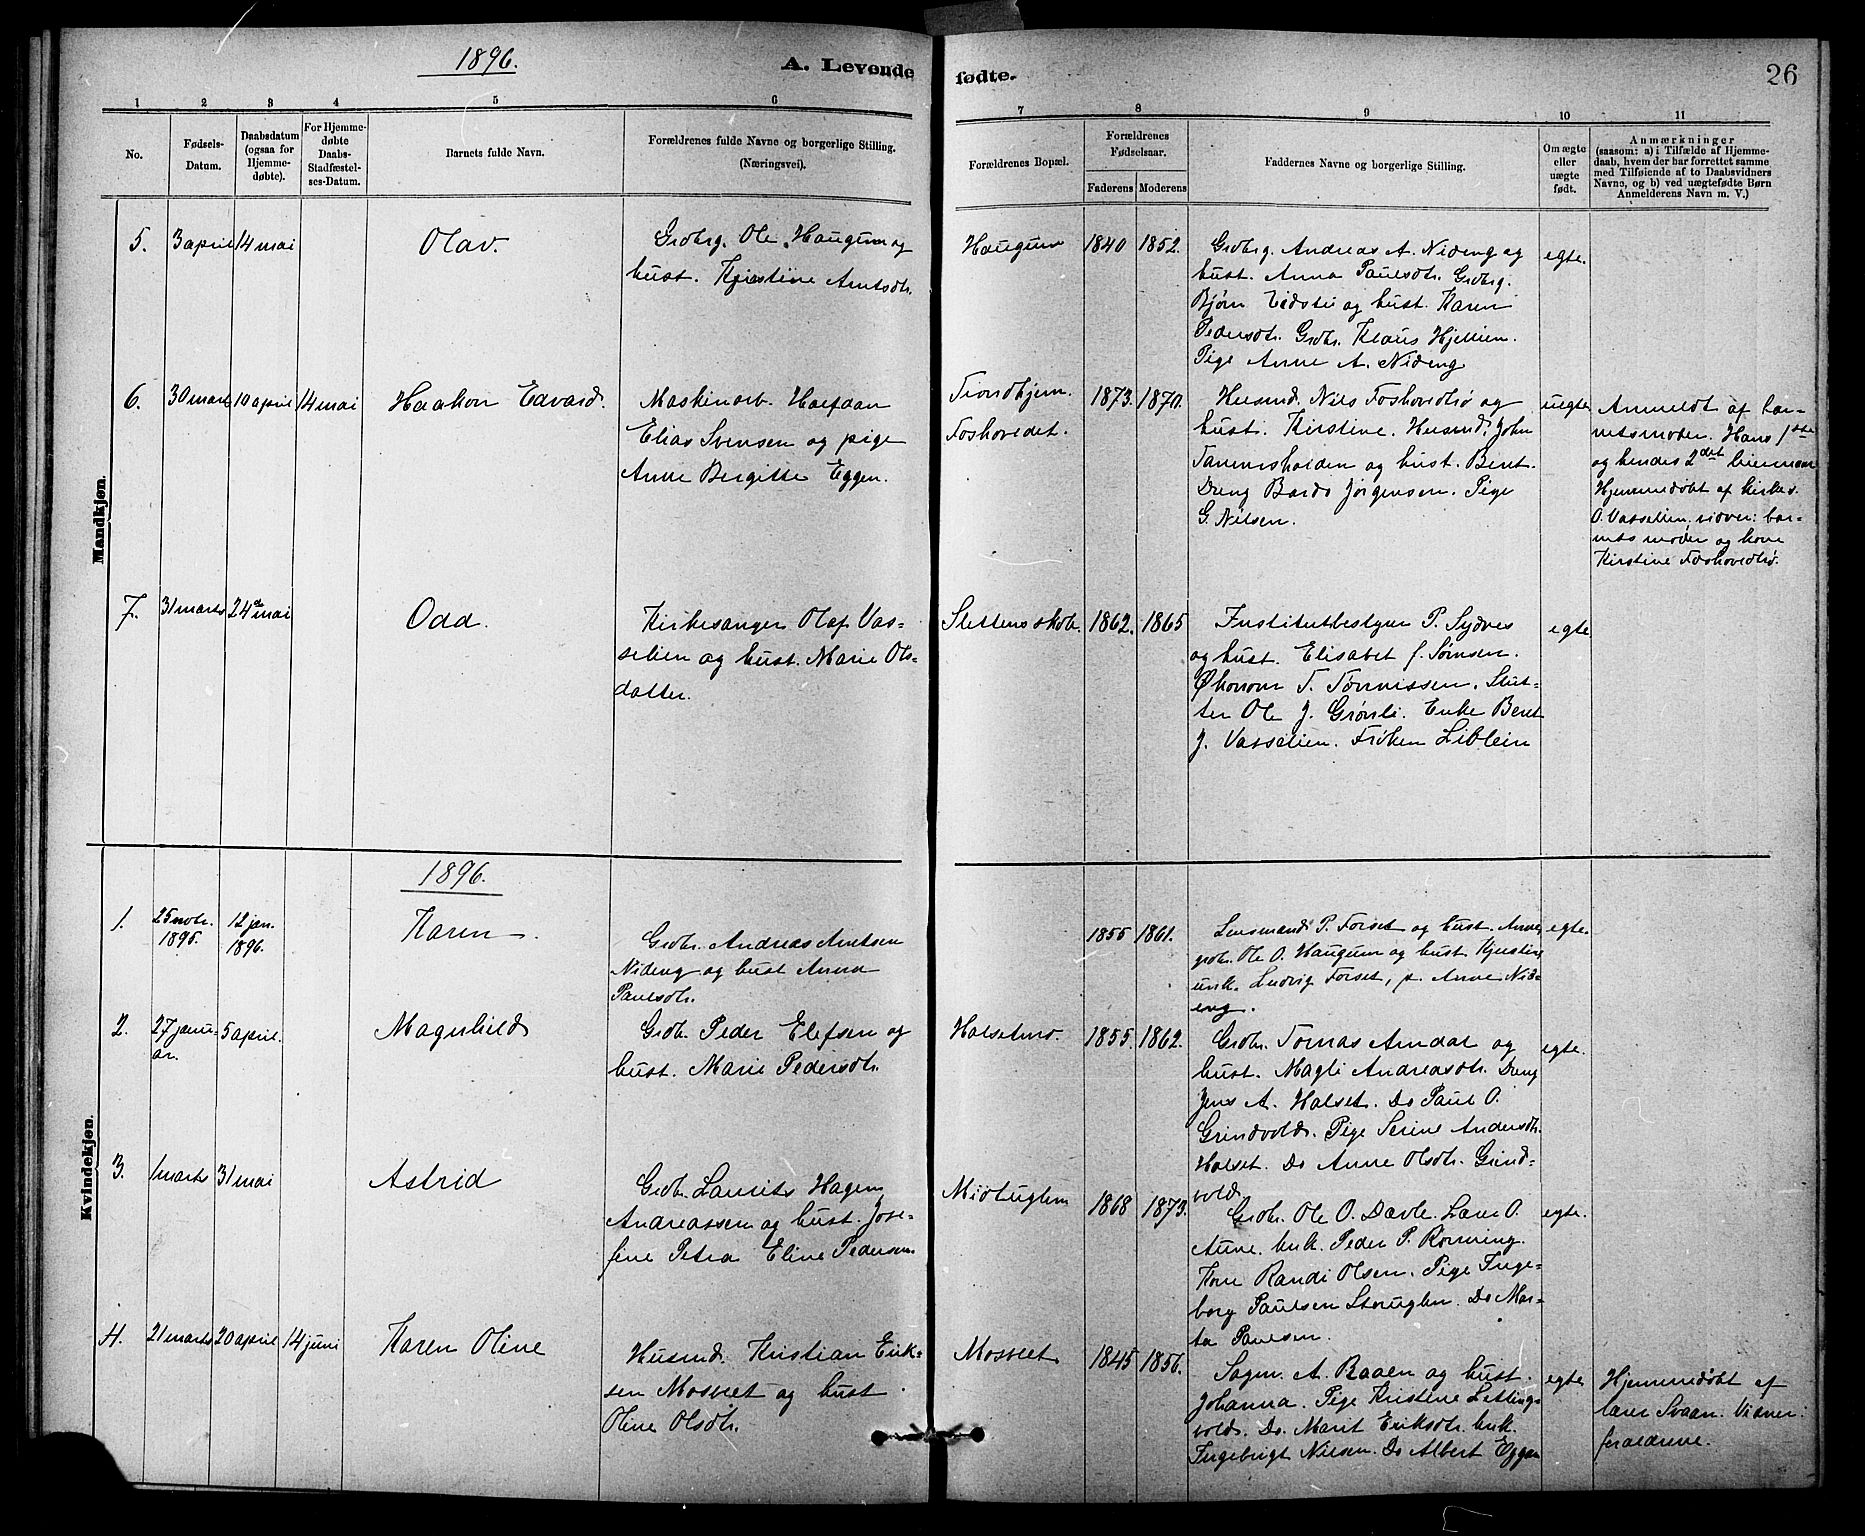 1896.
A. Levende
fødte.
26
1
2
3
4
5
6
7
8
9
10
11
No.
Fødsels-
Datum.
Daabsdatum
(ogsaa for
Hjemme-
døbte).
For Hjemme-
døbte
Daabs-
Stadfæstel-
ses-Datum.
Barnets fulde Navn.
Forældrenes fulde Navne og borgerlige Stilling.
(Næringsvei).
Forældrenes Bopæl.
Forældrenes
Fødselsaar.
Faderens
Moderens
Faddernes Navne og borgerlige Stilling.
Om ægte
eller
uægte
født.
Anmærkninger
(saasom: a) i Tilfælde af Hjemme-
daab, hvem der har forrettet samme
med Tilføiende af to Daabsvidners
Navne, og b) ved uægtefødte Børn
Anmelderens Navn m. V.)
Mandkjøn.
5.
3 april
14 mai
Olav.
Grdbrg. Ole Haugum og
hust. Kjerstine Arntsdtr.
Haugum
1840
1852.
Grdbrg. Andreas A. Nideng og
hust. Anna Paulsdtr. Grdbrg.
Bjørn Eidsli og hust. Karen
Pedersdtr. Grdbr. Klaus Hjellien.
Pige Anne A. Nideng
egte.
6.
30 marts
10 april
14 mai
Haakon Edvard.
Maskinarb. Halfdan
Elias Svensen og pige
Anne Bergitte Eggen.
Trondhjem.
Foshovedet.
1873.
1870.
Husmd. Nils Foshovedlø og
hust. Kirstine. Husmd. John
Tanemsholden og hust. Beret.
Dreng Bardo Jørgensen. Pige
G. Nilsen.
uegte
Anmeldt af bar-
netsmoder. Hans 1ste
og hendes 2det leiermaal
Hjemmedøbt af kirkes.
O. Vasselien, vidner: bar-
nets moder og kone
Kirstine Foshovedlø.
7.
31 marts
24de mai
Odd.
Kirkesanger Olaf Vas-
selien og hust. Marie Ols-
datter.
Slettens skole.
1862.
1865
Institutbestyrer P. Sydnes
og hust. Elisabet f. Sørnsen.
Økonom T. Tønnissen. Slut-
ter Ole J. Grønli. Enke Beret
J. Vasselien. Frøken Liblein
egte
Kvindekjøn.
1896.
1.
25 novbr.
1895.
12 jan.
1896.
Karen.
Grdbr. Andreas Arntsen
Nideng og hust Anna
Paulsdtr.
1855
1861.
Lensmand P. Forset og hust. Anne
grdbr. Ole O. Haugum og hust Kjerstine
unk. Ludvig Forset, p. Anne Nid-
eng.
egte.
2.
27 janu-
ar.
5 april.
Magnhild
Grdbr. Peder Elefsen og
hust. Marie Pedersdtr.
Halsetmo.
1855.
1862.
Grdbr. Tomas Amdal og
hust. Magli Andreasdtr. Dreng
Jens A. Halset. Do Paul O.
Grindvold. Pige Serine Andersdtr.
Halset. Do Anne Olsdtr. Grind-
vold
egte.
3.
1 marts
31 mai
Astrid
Grdbr. Laurits Hagen
Andreassen og hust. Jose-
fine Petra Eline Pedersen
Midtuglen
1868
1873.
Grdbr. Ole O. Davle. Lars O.
Aune. unk. Peder P. Rønning.
Kone Randi Olsen. Pige Inge-
borg Paulsen Storuglen. Do Mar-
ta Paulsen.
egte.
4.
21 marts
20 april
14 juni
Karen Oline
Husmd. Kristian Erik-
sen Mosveet og hust
Oline Olsdtr.
Mosveet
1845
1856.
Sagm. A. Raaen og hust.
Johanna. Pige Kristine Letlings-
vold. Do. Marit Eriksdtr. unk.
Ingebrigt Nilsen. Do Albert Eggen
egte
Hjemmedøbt af
lærer Svaan. Vidner:
forældrene.